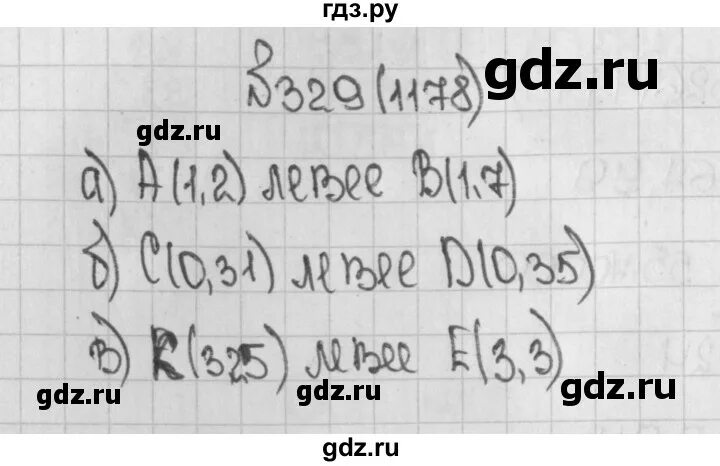 гдз.ру
№329(1178)
gdz.ru
gdz.ru
а) A(1,2) левее B(1,7)
gdz.ru
gdz.ru
б) C(0,31) левее D(0,35)
gdz.ru
в) K(3,25) левее E(3,3)
gdz.ru
gdz.ru
gdz.ru
gdz.ru